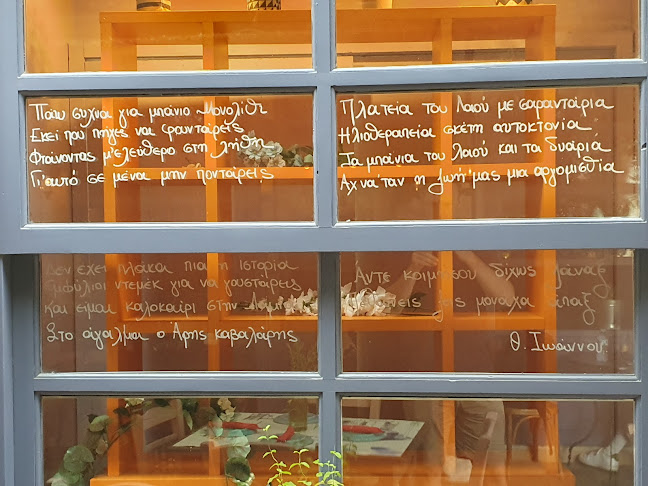 Πάω συχνά για μπάνιο Μονολίθι
Εκεί που πήγες να φραντάρεις
Φτύνοντας μ'ελεύθερο στη λήθη
Γι'αυτό σε μένα μην ποντάρεις
Πλατεία του Λαού με σαραντάρια
Ηλιοθεραπεία σκέτη αυτοκτονία
Τα μπάνια του λαού και τα δυάρια
Αχ να'ταν η ζωή μας μια αργομισθία
Δεν έχει πλάκα πια η ιστορία
Εμφύλιοι ντεμέκ για να γουστάρεις
Και είμαι καλοκαίρι στην
Στο άγαλμα ο Άρης καβαλάρης
Άντε κοιμήσου δίχως
ζεις μονάχα άπαξ
Θ. Ιωάννου